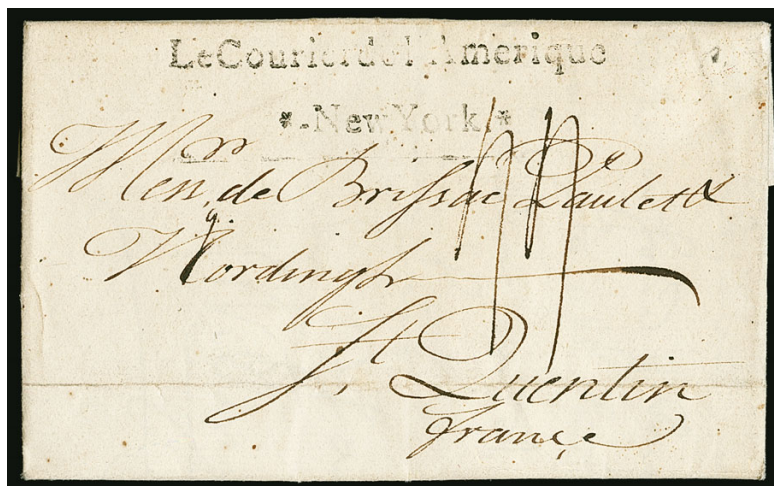 Le Courier del Amerique
*.New York.*
Messrs. de Brissac Paulet &
St. Quentin
france